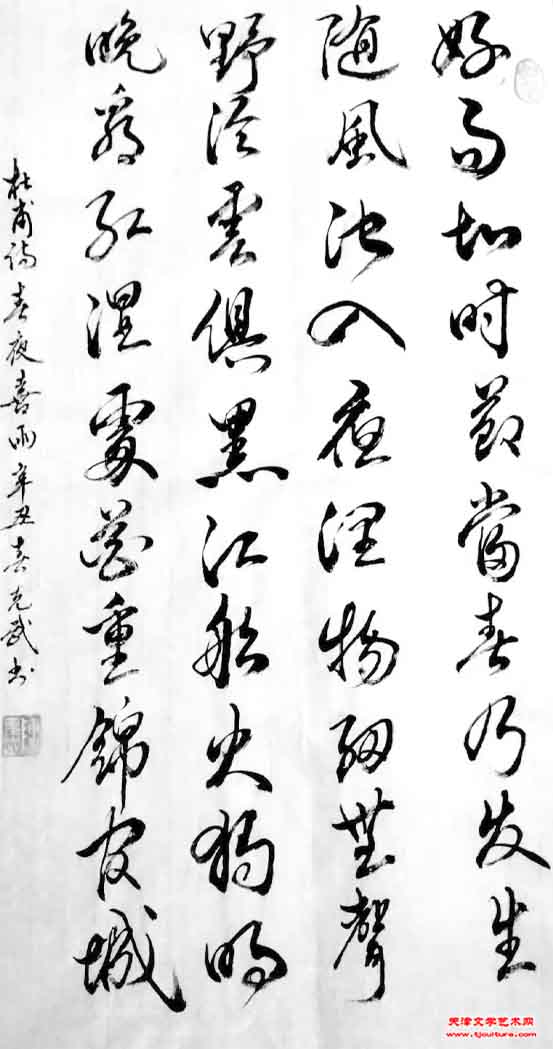 好雨知时節當春乃发生
随風潜入夜润物细無聲
野径雲俱黑江船火獨明
晓看红湿處花重錦官城
杜甫诗春夜喜雨辛丑春克武书
天津文学艺术网
www.tjculture.com